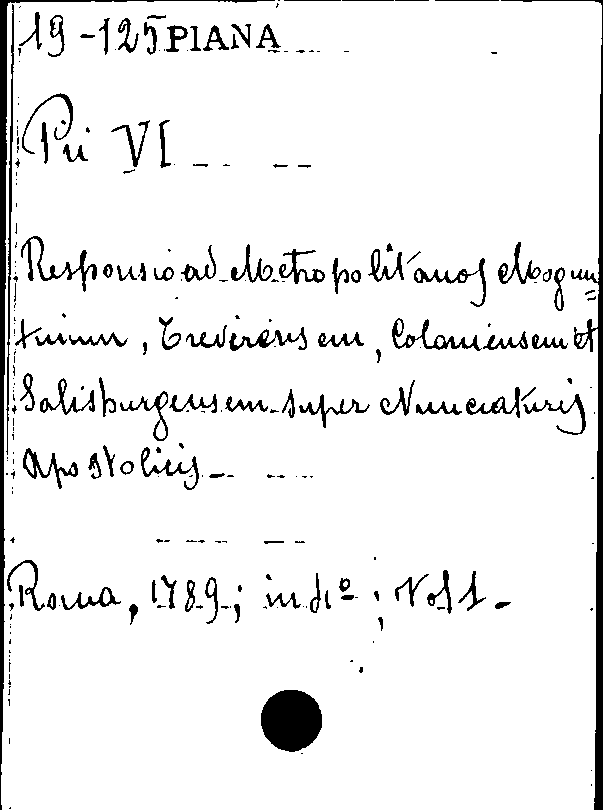 19-125 PIANA
Pii VI
Responsio ad Metropolitanos Mogun=
tinum, Trevirensem, Coloniensem et
Salisburgensem super Nunciaturis
Apostolicis
Roma, 1789; in 4º; Vol 1.